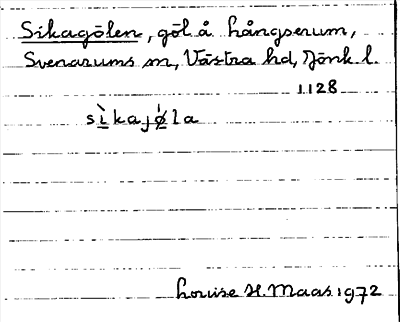 Sikagölen, göl å Långserum,
Svenarums sn, Västra hd, Jönk. l.
1128
sìkajø̀la
Louise H. Maas 1972